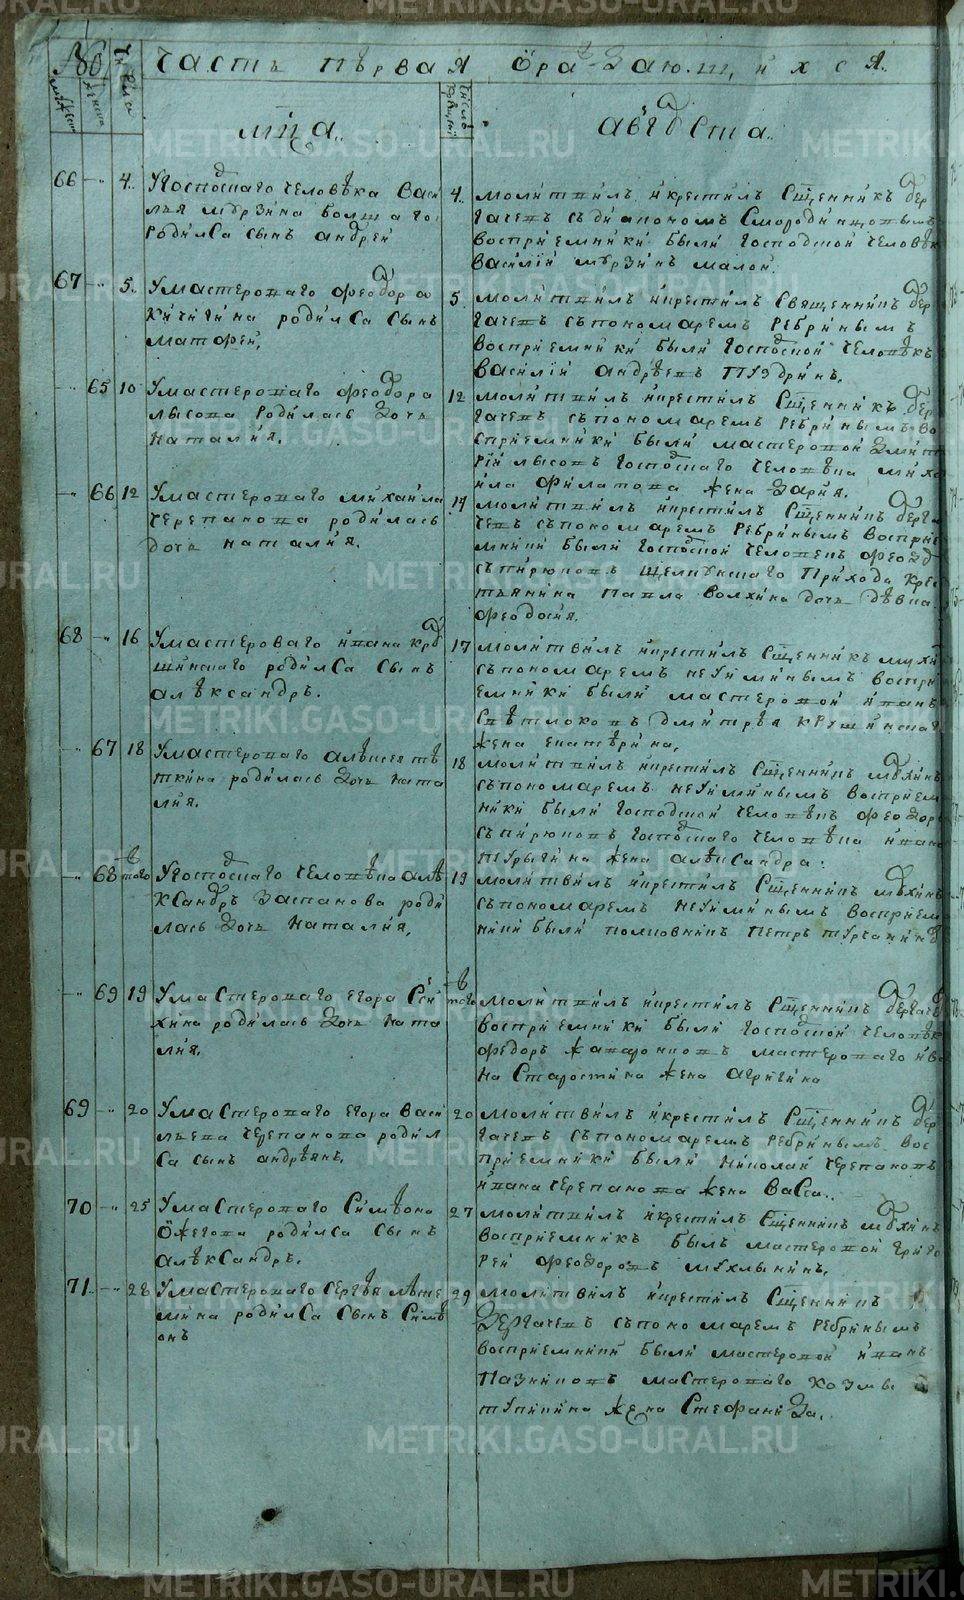 Часть первая ŏ раждающихся
мца
августа
66 4 Угосподскаго человѣка Васи
лья мурзина болшаго
родился сынъ андрей
4 молитвилъ икрестилъ Сщенникъ дер
гачевъ съдиакономъ Смородинцовымъ
восприемники были господской человѣкъ
василий мурзинъ малой
67 5 Умастероваго феодора
кичигина родился сынъ
матфей
5 молитвилъ икрестилъ Священникъ дер
гачевъ съпономаремъ Ребринымъ
восприемники были господской человѣкъ
василий андрѣевъ
65 10 Умастероваго феодора
лысова родилась дочь
наталия
12 молитвилъ икрестилъ Сщенникъ дер
гачевъ съпономаремъ Ребринымъ во
сприемники были мастеровой дмит
рій лысовъ господскаго человѣка миха
ила филатова жена дария
66 12 Умастероваго михаила
черепанова родилась
дочь наталия
14 молитвилъ икрестилъ Сщенникъ дерга
чевъ съпономаремъ Ребринымъ воспрıе
мники были господской человекъ феодо
съпирюковъ прихода крес
тьянина павла волхина дочь дѣвка
феодосия
68 16 Умастероваго ивана кру
шинскаго родился сынъ
алѣксандръ
17 молитвилъ икрестилъ Сщенникъ мухи
съпономаремъ неуиминымъ воспри
емники были мастеровой иванъ
Свѣтлоковъ дмитрѣя крушинскаг
жена екатѣрина
67 18 Умастероваго алѣксея пѣ
ткина родилась дочь ната
лия
18 молитвилъ икрестилъ Сщенникъ мухинъ
съпономаремъ неуиминымъ восприем
ники были господской человѣкъ феодоръ
съпирюковъ господскаго человѣка ивана
турыгина жена алѣксандра
68 того Угосподскаго человѣка алѣ
ксандръ Заспанова роди
лась дочь наталия
19 молитвилъ икрестилъ Сщенникъ мухинъ
съпономаремъ неуиминымъ восприем
ники были полковникъ петръ турчанинъ
69 19 Умастероваго егора Сен
хина родилась дочь ната
лия
того молитвилъ икрестилъ Сщенникъ дергачев
восприемники были господской человѣкъ
федоръ мастероваго ива
на Старостина жена
69 20 Умастероваго егора васи
льева черепанова родил
ся сынъ андрѣянъ
20 молитвилъ икрестилъ Сщенникъ дер
гачевъ съпономаремъ ребринымъ вос
приемники были николай черепановъ
ивана черепанова жена васса
70 25 Умастероваго Симѣона
ŏжегова родился сынъ
алѣксандръ
27 молитвилъ икрестилъ Сщенникъ мухинъ
восприемникъ былъ мастеровой григо
рей феодоровъ мухлынинъ
71 28 Умастероваго сергѣя
мина родился сынъ Симѣ
онъ
29 молитвилъ икрестилъ Сщенникъ
дергачевъ съпономаремъ ребринымъ
восприемники были мастеровой иванъ
пазниковъ мастероваго козмы
тупицина жена Стефанида
METRIKI.GASO-URAL.RU